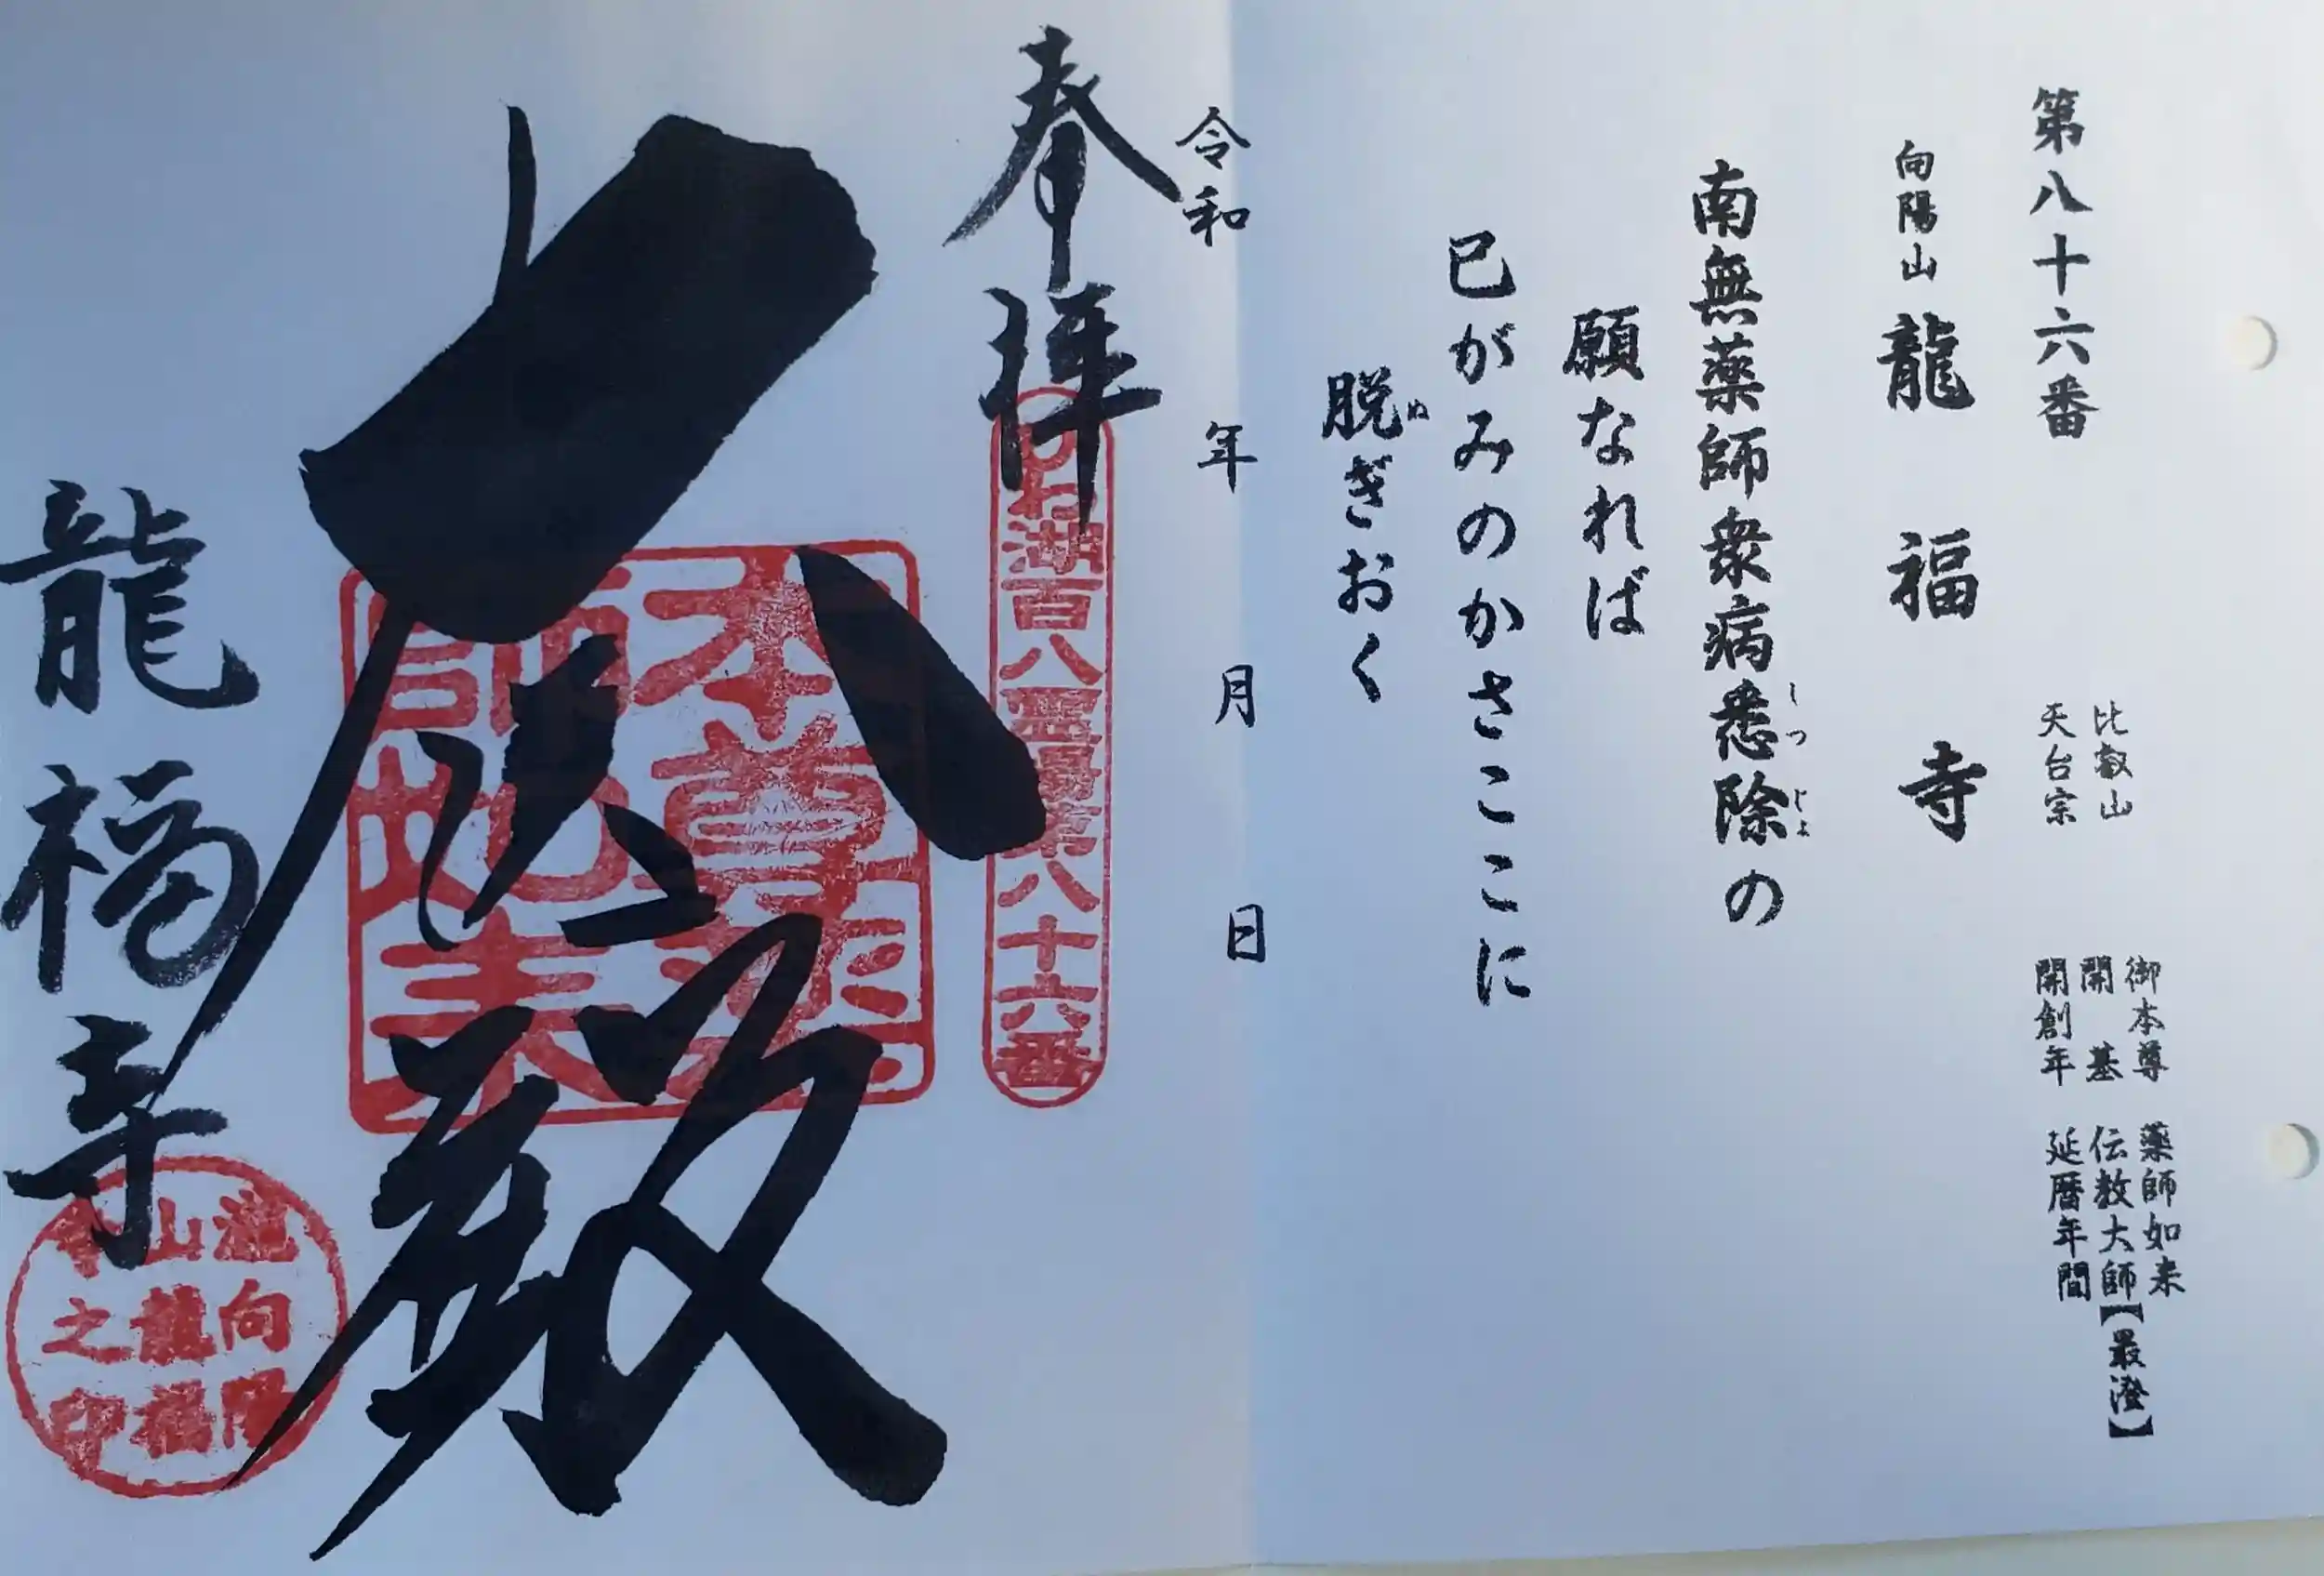 第八十六番
比叡山
天台宗
御本尊 薬師如来
開基 伝教大師【最澄】
開創年 延暦年間
向陽山 龍福寺
南無薬師衆病悉除の
しつじよ
願なれば
巳がみのかさここに
脱ぎおく
ぬ
令和 年 月 日
奉拝
びわ湖百八霊場第八十六番
本尊薬
師如来
龍福寺
向陽
山龍福
寺之印